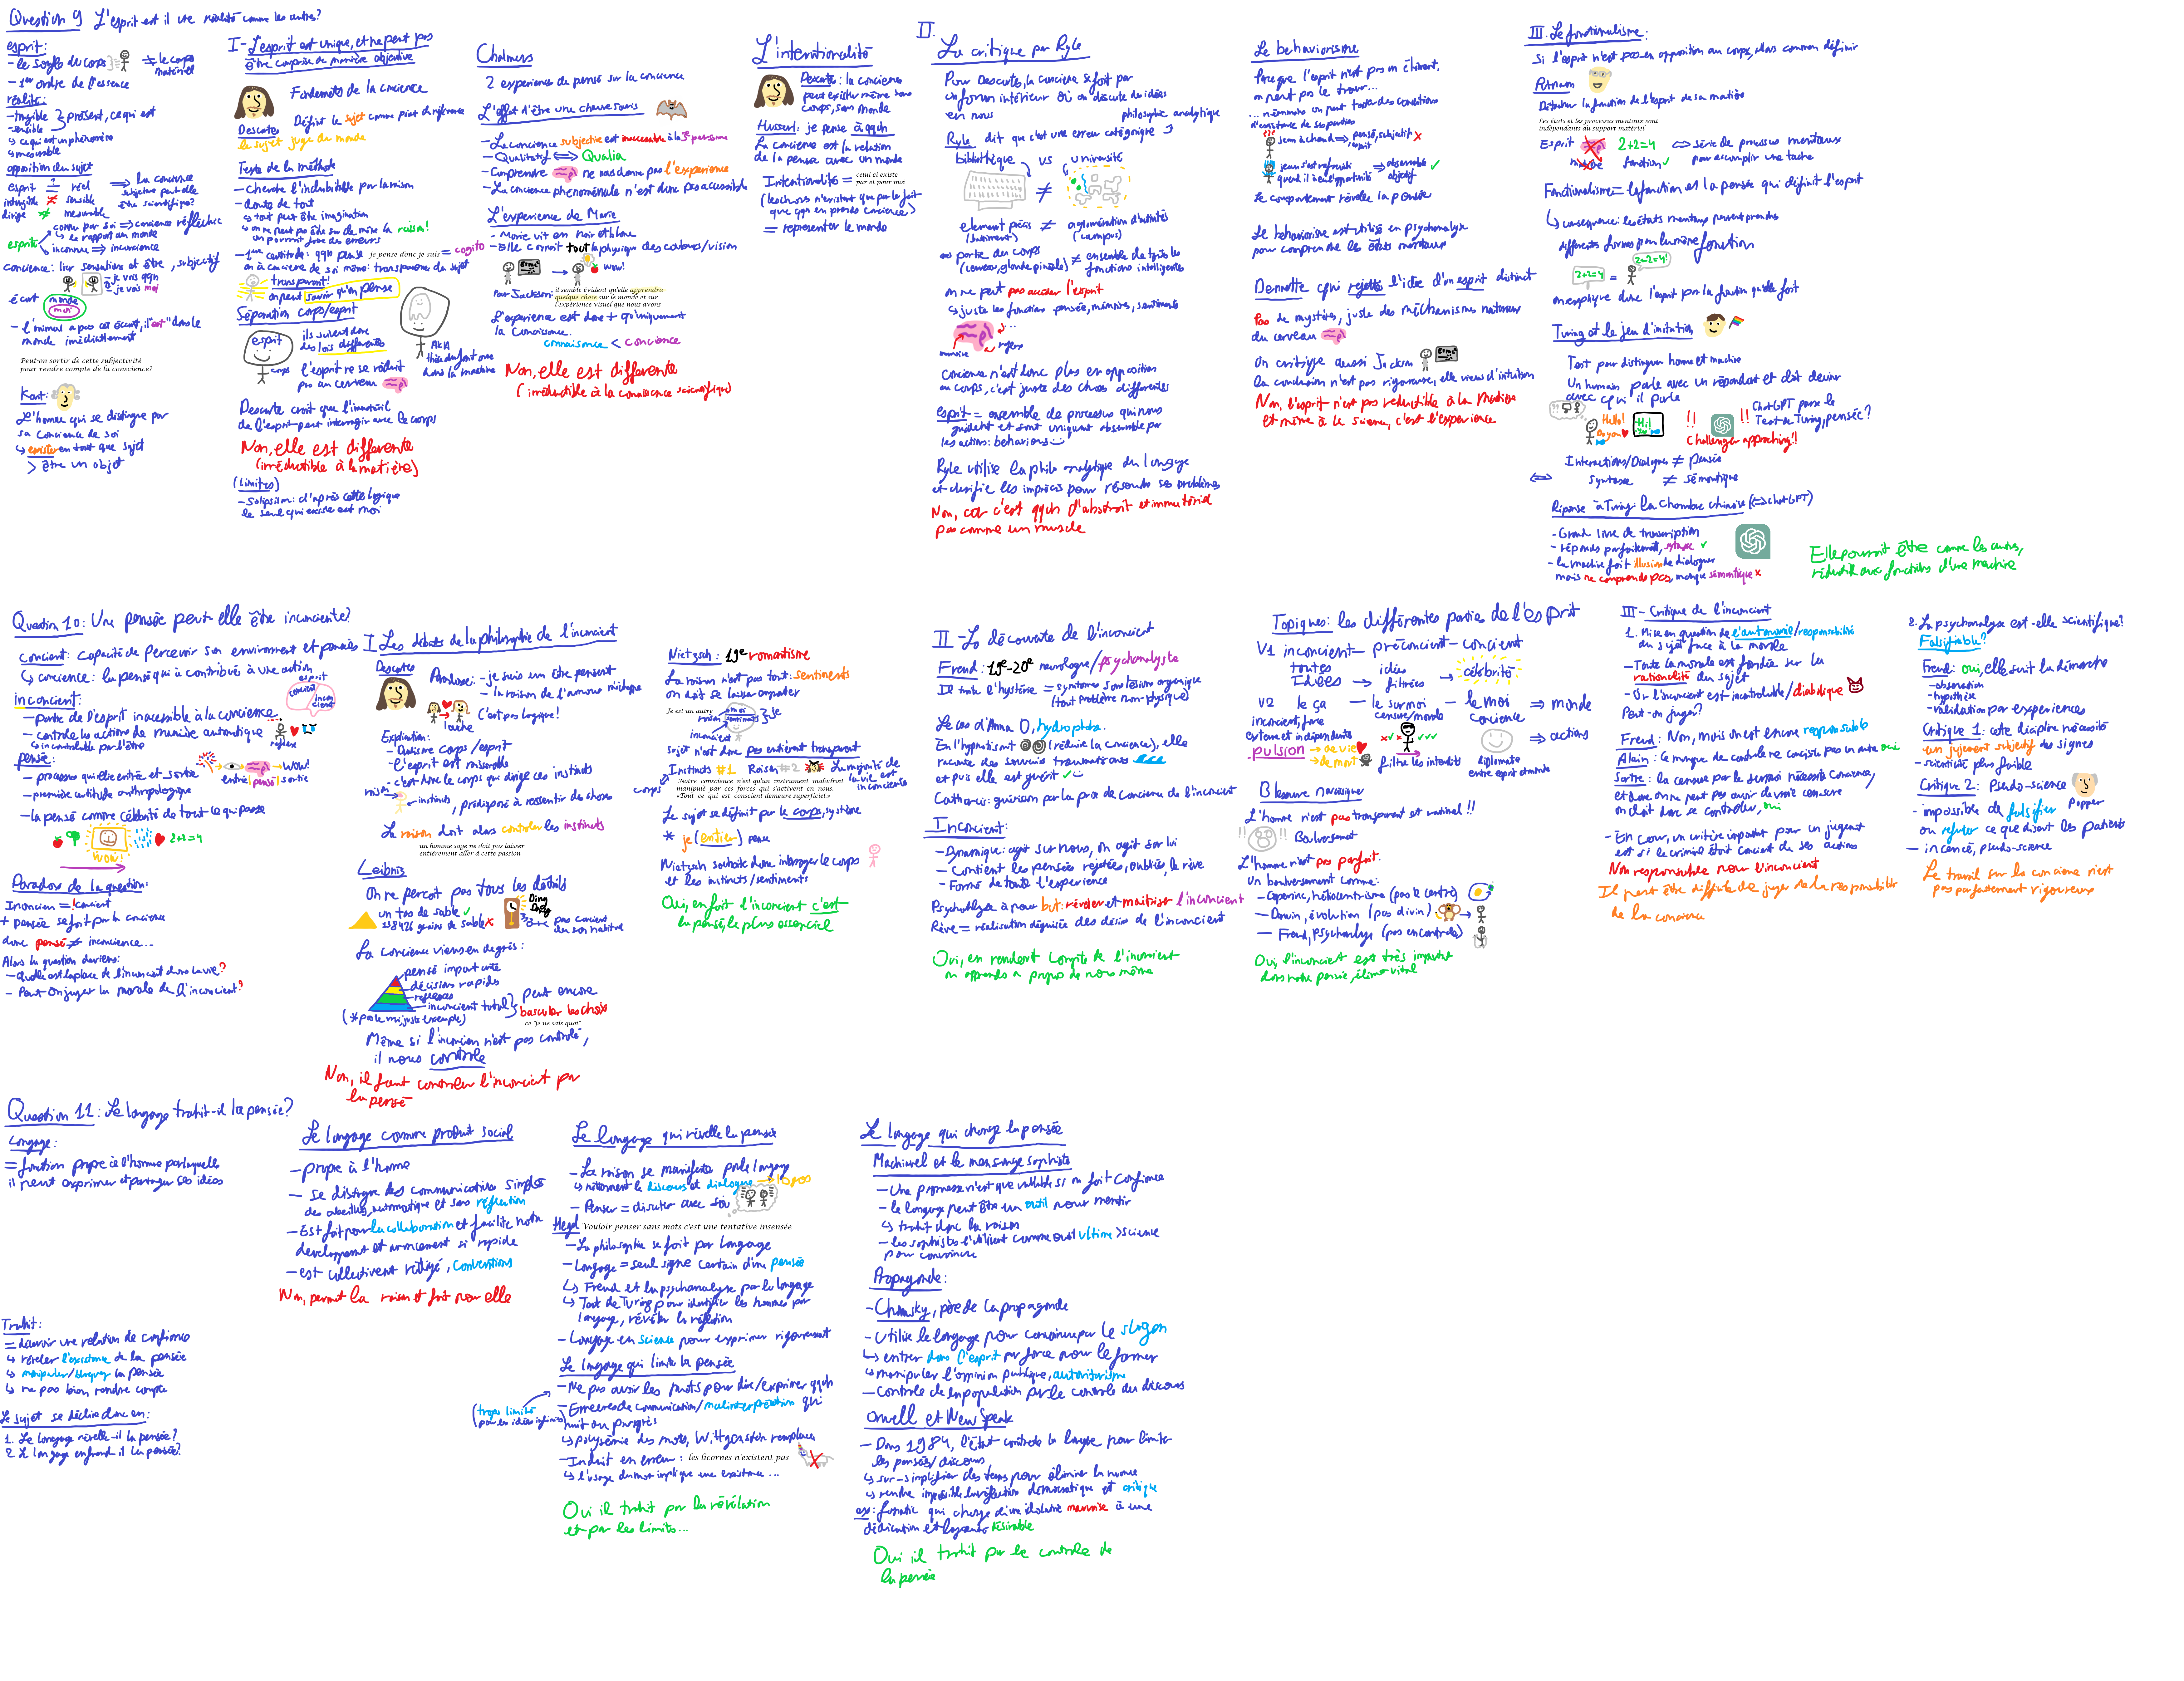 Question 9 L'esprit est il une réalité comme les autres?
esprit:
- le souffle du corps ≠ le corps matériel
- 1er ordre de l'essence
réalité:
- tangible
- sensible
présent, ce qui est
↳ ce qui est un phénomène
↳ mesurable
opposition du sujet
esprit = réel
intangible ≠ sensible
dirige ≠ mesurable
⇒ la conscience subjective peut elle être scientifique?
esprit
connu par soi ⇒ conscience réfléchie
↳ le rapport au monde
inconnue ⇒ inconscience
conscience: lier sensations et être, subjectif
- je vois qqh
- je vois moi
écart
monde
moi
- l'animal a pas cet écart, il "est" dans le
monde immédiatement
Peut-on sortir de cette subjectivité
pour rendre compte de la conscience?
Kant:
L'homme qui se distingue par
sa conscience de soi
↳ exister en tant que sujet
> être un objet
I - L'esprit est unique, et ne peut pas
être comprise de manière objective
Fondements de la conscience
Descartes
Définit le sujet comme point de référence
le sujet juge du monde
Texte de la méthode
- Cherche l'indubitable par la raison
- doute de tout
↳ tout peut être imagination
↳ on ne peut pas être sûr de même la raison!
on pourrait faire des erreurs
- 1ere certitude: qqh pense je pense donc je suis = cogito
on a conscience de soi même: transparence du sujet
transparent!
on peut savoir qu'on pense
Séparation corps/esprit
esprit
corps
ils suivent donc
des lois différentes
l'esprit ne se réduit
pas au cerveau
AKA
théorie du fantôme
dans la machine
Descarte croit que l'immatériel
de l'esprit peut interragir avec le corps
Non, elle est differente
(irréductible à la matière)
(Limites)
- Solipsisme: d'après cette logique
le seul qui existe est moi
Chalmers
2 experiences de pensé sur la conscience
L'effet d'être une chauve souris
- La conscience subjective est inaccessible à la 3e personne
- Qualitatif ⟺ Qualia
- Comprendre ne nous donne pas l'experience
- La conscience phénoménale n'est donc pas accessible
L'experience de Marie
- Marie vit en noir et blanc
- Elle connait tout la physique des couleurs/vision
wow!
Par Jackson: il semble évident qu'elle apprendra
quelque chose sur le monde et sur
l'expérience visuel que nous avons
L'experience est donc + qu'uniquement
la connaissance.
connaissance < conscience
Non, elle est differente
(irréductible à la connaissance scientifique)
L'intentionalité
Descartes: la conscience
peut exister même sans
corps, sans monde
Husserl: je pense à qqch
La conscience est la relation
de la pensée avec un monde
Intentionalité = celui-ci existe
par et pour moi
(les choses n'existent que par le fait
que qqn en prends conscience)
= representer le monde
II.
La critique par Ryle
Pour Descartes, la conscience se fait par
un forum intérieur où on discute des idées
en nous
philosophie analytique
Ryle dit que c'est une erreur catégorique
bibliothèque vs université
≠
element précis ≠ agglomération d'activités
(batiment) (campus)
⇔ partie du corps ≠ ensemble de toutes les
(cerveau, glande pinéale) fonctions intelligentes
on ne peut pas accéder l'esprit
↳ juste les fonctions pensée, mémoire, sentiments
...
réflexe
mémoire
Conscience n'est donc plus en opposition
au corps, c'est juste des choses différentes
esprit = ensemble de processus qui nous
guident et sont uniquement observable par
les actions: behaviors
Ryle utilise la philo analytique du langage
et clarifie les imprécis pour résoudre ses problèmes
Non, car c'est qqch d'abstrait et immatériel
pas comme un muscle
Le behaviorisme
Parce que l'esprit n'est pas un élément,
on peut pas le trouver...
... néanmoins on peut traiter des conditions
d'existance de ses parties
jean a chaud ⇒ pensé, subjectif ✗
esprit
jean s'est refroidi ⇒ observable ✓
quand il a eu l'opportunité objectif
Le comportement révèle la pensée
Le behaviorisme est utilisé en psychanalyse
pour comprendre les états mentaux
Dennette qui rejette l'idée d'un esprit distinct
Pas de mystère, juste des méchanismes naturaux
du cerveau
On critique aussi Jackson
la conclusion n'est pas rigoureuse, elle viens d'intuition
Non, l'esprit n'est pas réductible à la matière
et même à la science, c'est l'experience
III. Le fonctionalisme:
Si l'esprit n'est pas en opposition au corps, alors comment définir
Putnam
Détacher la fonction de l'esprit de sa matière
Les états et les processus mentaux sont
indépendants du support matériel
Esprit 2+2=4 ⟺ série de processus mentaux
matière fonction ✓ pour accomplir une tache
Fonctionalisme = la fonction est la pensée qui définit l'esprit
↳ consequence: les états mentaux peuvent prendre
differentes formes pour la même fonction
2+2=4 = 2+2=4!
on explique donc l'esprit par la fonction qu'elle fait
Turing et le jeu d'imitation
Test pour distinguer homme et machine
Un humain parle avec un répondant et doit deviner
avec qui il parle
Hello!
Do you
Hi!
!! !!
ChatGPT passe le
Test de Turing, pensée?
Challenger approaching!!
Interactions/Dialogues ≠ pensée
⟺ Syntaxe ≠ sémantique
Réponse à Turing: la chambre chinoise (⟺ chatGPT)
- Grand livre de transcription
- répond parfaitement, syntaxe ✓
- la machine fait illusion de dialoguer
mais ne comprends pas, manque sémantique ✗
Elle pourrait être comme les autres,
réductible aux fonctions d'une machine
Question 10: Une pensée peut-elle être inconciente?
concient: capacité de percevoir son enviroment et pensées
↳ concience: la pensé qui à contribué à une action
esprit
concient
inconcient
inconcient:
- partie de l'esprit inacessible à la concience
- controle les actions de manière automatique
↳ incontrolable par l'être
réflexe
pensée:
- processus qui relie entrée et sortie
WOW!
entrée | pensé | sortie
- première certitude anthropologique
- la pensé comme célébrité de tout ce qui passe
2+2=4
WOW!
Paradoxe de la question:
Inconcien = !concient
+ pensée se fait par la concience
donc pensé ≠ inconcience...
Alors la question deviens:
- Quelle est la place de l'inconcient dans la vie?
- Peut-on juger la morale de l'inconcient?
I Les débats de la philosophie de l'inconcient
Descartes
Paradoxe: - je suis un être pensant
- la raison de l'amour m'échappe
C'est pas logique!
louche
Explication:
- Dualisme corps/esprit
- l'esprit est raisonable
- c'est donc le corps qui dirige ces instincts
raison
instincts, prédisposé à ressentir des choses
La raison doit alors controler les instincts
un homme sage ne doit pas laisser
entièrement aller à cette passion
Leibniz
On ne perçoit pas tous les détails
un tas de sable ✓
118426 grains de sable ✗
Ding
Dong
pas concient
du son habituel
La conscience viens en degrés:
pensé importante
décisions rapides
réflexes
inconcient total
peut encore
basculer les choix
ce "je ne sais quoi"
(*pas le vrai, juste exemple)
Même si l'inconcien n'est pas controlé,
il nous controle
Non, il faut controler l'inconcient par
la pensé
Nietzsch: 19e romantisme
La raison n'est pas tout: sentiments
on doit se laisser emporter
Je est un autre
raison
moi
sentiments
je
inconcient
Sujet n'est donc pas entièrement transparent
Instincts #1 Raison #2
La majorité de
la vie est
inconciente
corps
Notre conscience n'est qu'un instrument maladroit
manipulé par ces forces qui s'activent en nous.
«Tout ce qui est conscient demeure superficiel.»
Le sujet se définit par le corps, système
* je (entier) pense
Nietzsch souhaite donc interroger le corps
et les instincts/sentiments
Oui, en fait l'inconcient c'est
la pensé, le plus essenciel
II - La découverte de l'inconcient
Freud: 19e-20e neurologue/psychanalyste
Il traite l'hystérie = symptomes sans lésion organique
(tout problème non-physique)
Le cas d'Anna O, hydrophobe.
En l'hypnotisant (réduire la concience), elle
raconte des souvenirs traumatisants
et puis elle est guérit ✓
Catharcis: guérison par la prise de concience de l'inconcient
Inconcient:
- Dynamique: agit sur nous, on agit sur lui
- Contient les pensées rejetées, oubliés, le rêve
- Formé de toute l'experience
Psychanalyse à pour but: révéler et maitriser l'inconcient
Rêve = réalisation déguisée des désirs de l'inconcient
Oui, en rendant compte de l'inconcient
on apprends a propos de nous même
Topiques: les différentes partie de l'esprit
V1 inconcient - préconcient - concient
toutes
Idées → idées
filtrées → célébrité
V2 le ça - le surmoi - le moi ⇒ monde
inconcient, force
externe et indépendante
censure/morale
concience
⇒ actions
- pulsion → de vie
→ de mort
filtre les interdits
diplomate
entre esprit et monde
Blessure narcisique
L'homme n'est pas transparent et rationel!!
!! !! Bouleversement
L'homme n'est pas parfait.
Un bouleversement comme:
- Copernic, héliocentrisme (pas le centre)
- Darwin, évolution (pas divin)
- Freud, psychanalyse (pas en controle)
Oui, l'inconcient est très important
dans notre pensée, élément vital
III - Critique de l'inconcient
1. Mise en question de l'autonomie/responsabilité
du sujet face à la morale
- Toute la morale est fondée sur la
rationalité du sujet
- Or l'inconcient est incontrolable/diabolique
Peut-on juger?
Freud: Non, mais on est encore responsable
Alain: le manque de controle ne concisite pas un autre oui
Sartre: la censure par le surmoi nécessite concience,
et donc on ne peut pas avoir de vraie censure
on doit donc se controler, oui
- En cour, un critère important pour un jugement
est si le criminel étoit concient de ses actions
Non responsable pour l'inconcient
Il peut être difficile de juger de la responsabilité
de la concience
2. La psychanalyse est-elle scientifique?
Falsifiable?
Freud: oui, elle suit la démarche
- observation
- hypothèse
- validation par experiences
Critique 1: cette discipline nécessite
un jugement subjectif des signes
- scientificité plus faible
Critique 2: Pseudo-science
Popper
- impossible de falsifier
ou refuter ce que disent les patients
- insensé, pseudo-science
Le travail sur la concience n'est
pas parfaitement rigoureux
Question 11: Le langage trahit-il la pensée?
Langage:
= fonction propre à l'homme par laquelle
il peut exprimer et partager ses idées
Trahit:
= décevoir une relation de confience
↳ révéler l'existence de la pensée
↳ manipuler/bloquer la pensée
↳ ne pas bien rendre compte
Le sujet se décline donc en:
1. Le langage révelle-il la pensée?
2. Le langage enfreind il la pensée?
Le langage comme produit social
- propre à l'homme
- se distingue des communications simples
des abeilles, automatique et sans réflection
- Est fait pour la collaboration et facilite notre
developpment et avancement si rapide
- est collectivent rédigé, conventions
Non, permet la raison et fait pour elle
Le langage qui révelle la pensée
- La raison se manifeste par le langage
↳ notamment le discours et dialogue → logos
- Penser = discuter avec soi
Hegel Vouloir penser sans mots c'est une tentative insensée
- La philosophie se fait par langage
- Langage = seul signe certain d'une pensée
↳ Freud et la psychanalyse par le langage
↳ Test de Turing pour identifier les hommes par
langage, révéler la réflection
- Langage en science pour exprimer rigoureusement
Le langage qui limite la pensée
- Ne pas avoir les mots pour dire/exprimer qqch
(trops limité
pour les idées infinies)
- Erreures de communication/malinterprétation qui
nuit au progrès
↳ polysémie des mots, Wittgenstein remplace
- Induit en erreur: les licornes n'existent pas
↳ l'usage du mot implique une existence...
Oui il trahit par la révélation
et par les limits...
Le langage qui change la pensée
Machiavel et le mensonge sophiste
- Une promesse n'est que valable si on fait confience
- le langage peut être un outil pour mentir
↳ trahit donc la raison
- les sophistes l'utilisent comme outil ultime > science
pour convaincre
Propagande:
- Chomsky, père de la propagande
- Utilise le langage pour convaincre par le slogan
↳ entrer dans l'esprit par force pour le former
↳ manipuler l'opinion publique, autoritarisme
- Controle de la population par le controle du discours
Orwell et New Speak
- Dans 1984, l'état controle la langue pour limiter
les pensées/discours
↳ sur-simplifier des termes pour éliminer la nuance
↳ rendre impossible la réflection democratique et critique
ex: fanatic qui change d'une idolatrie mauvaise à une
dédication et loyauté désirable
Oui il trahit par le controle de
la pensée